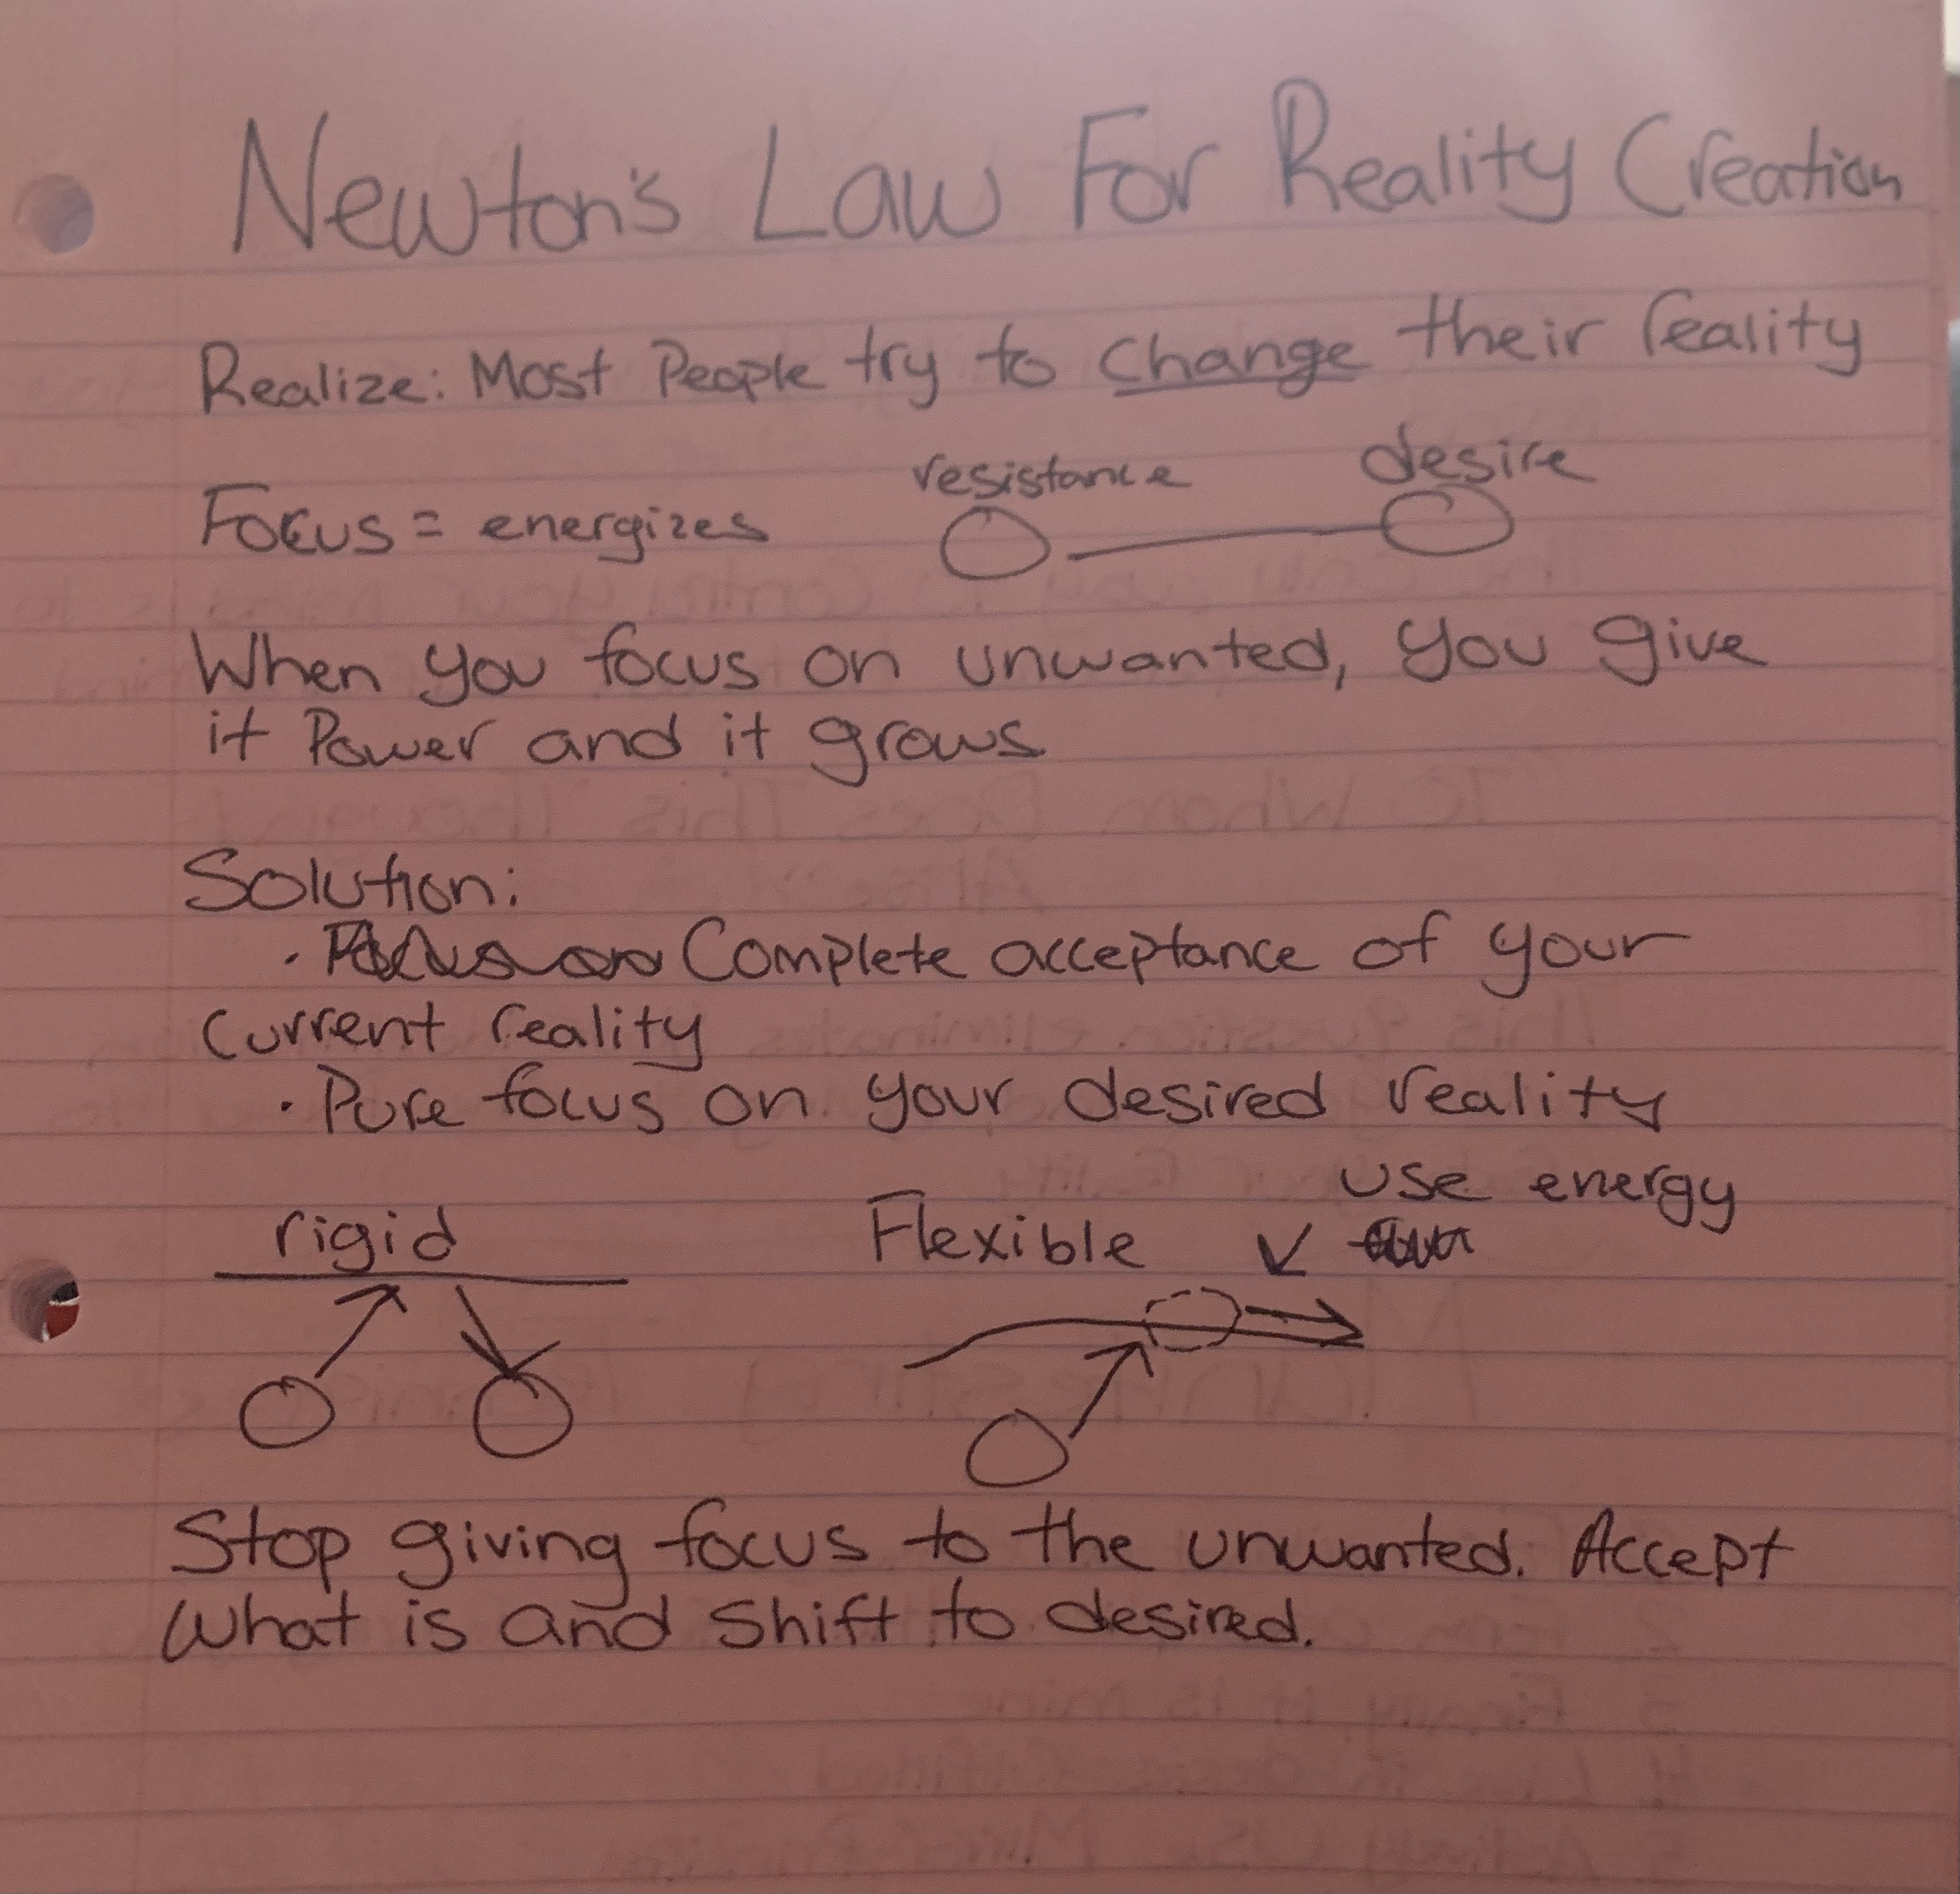 Newton's Law For Reality Creation
Realize: Most People try to change their reality
resistance desire
Focus = energizes
When you focus on unwanted, you give
it Power and it grows
Solution:
· Complete acceptance of your
current reality
· Pure focus on your desired reality
use energy
rigid Flexible
Stop giving focus to the unwanted. Accept
what is and shift to desired.